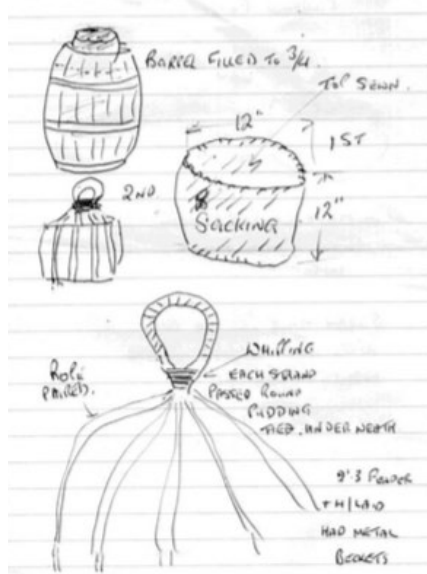 BARREL FILLED TO 3/4.
TOP SEWN.
12"
1ST
2ND
12"
SACKING
WHIPPING
EACH STRAND
PASSED ROUND
PUDDING
TIED UNDER NEATH
ROPE
PAIRED.
H/LAID
HAD METAL
BECKETS